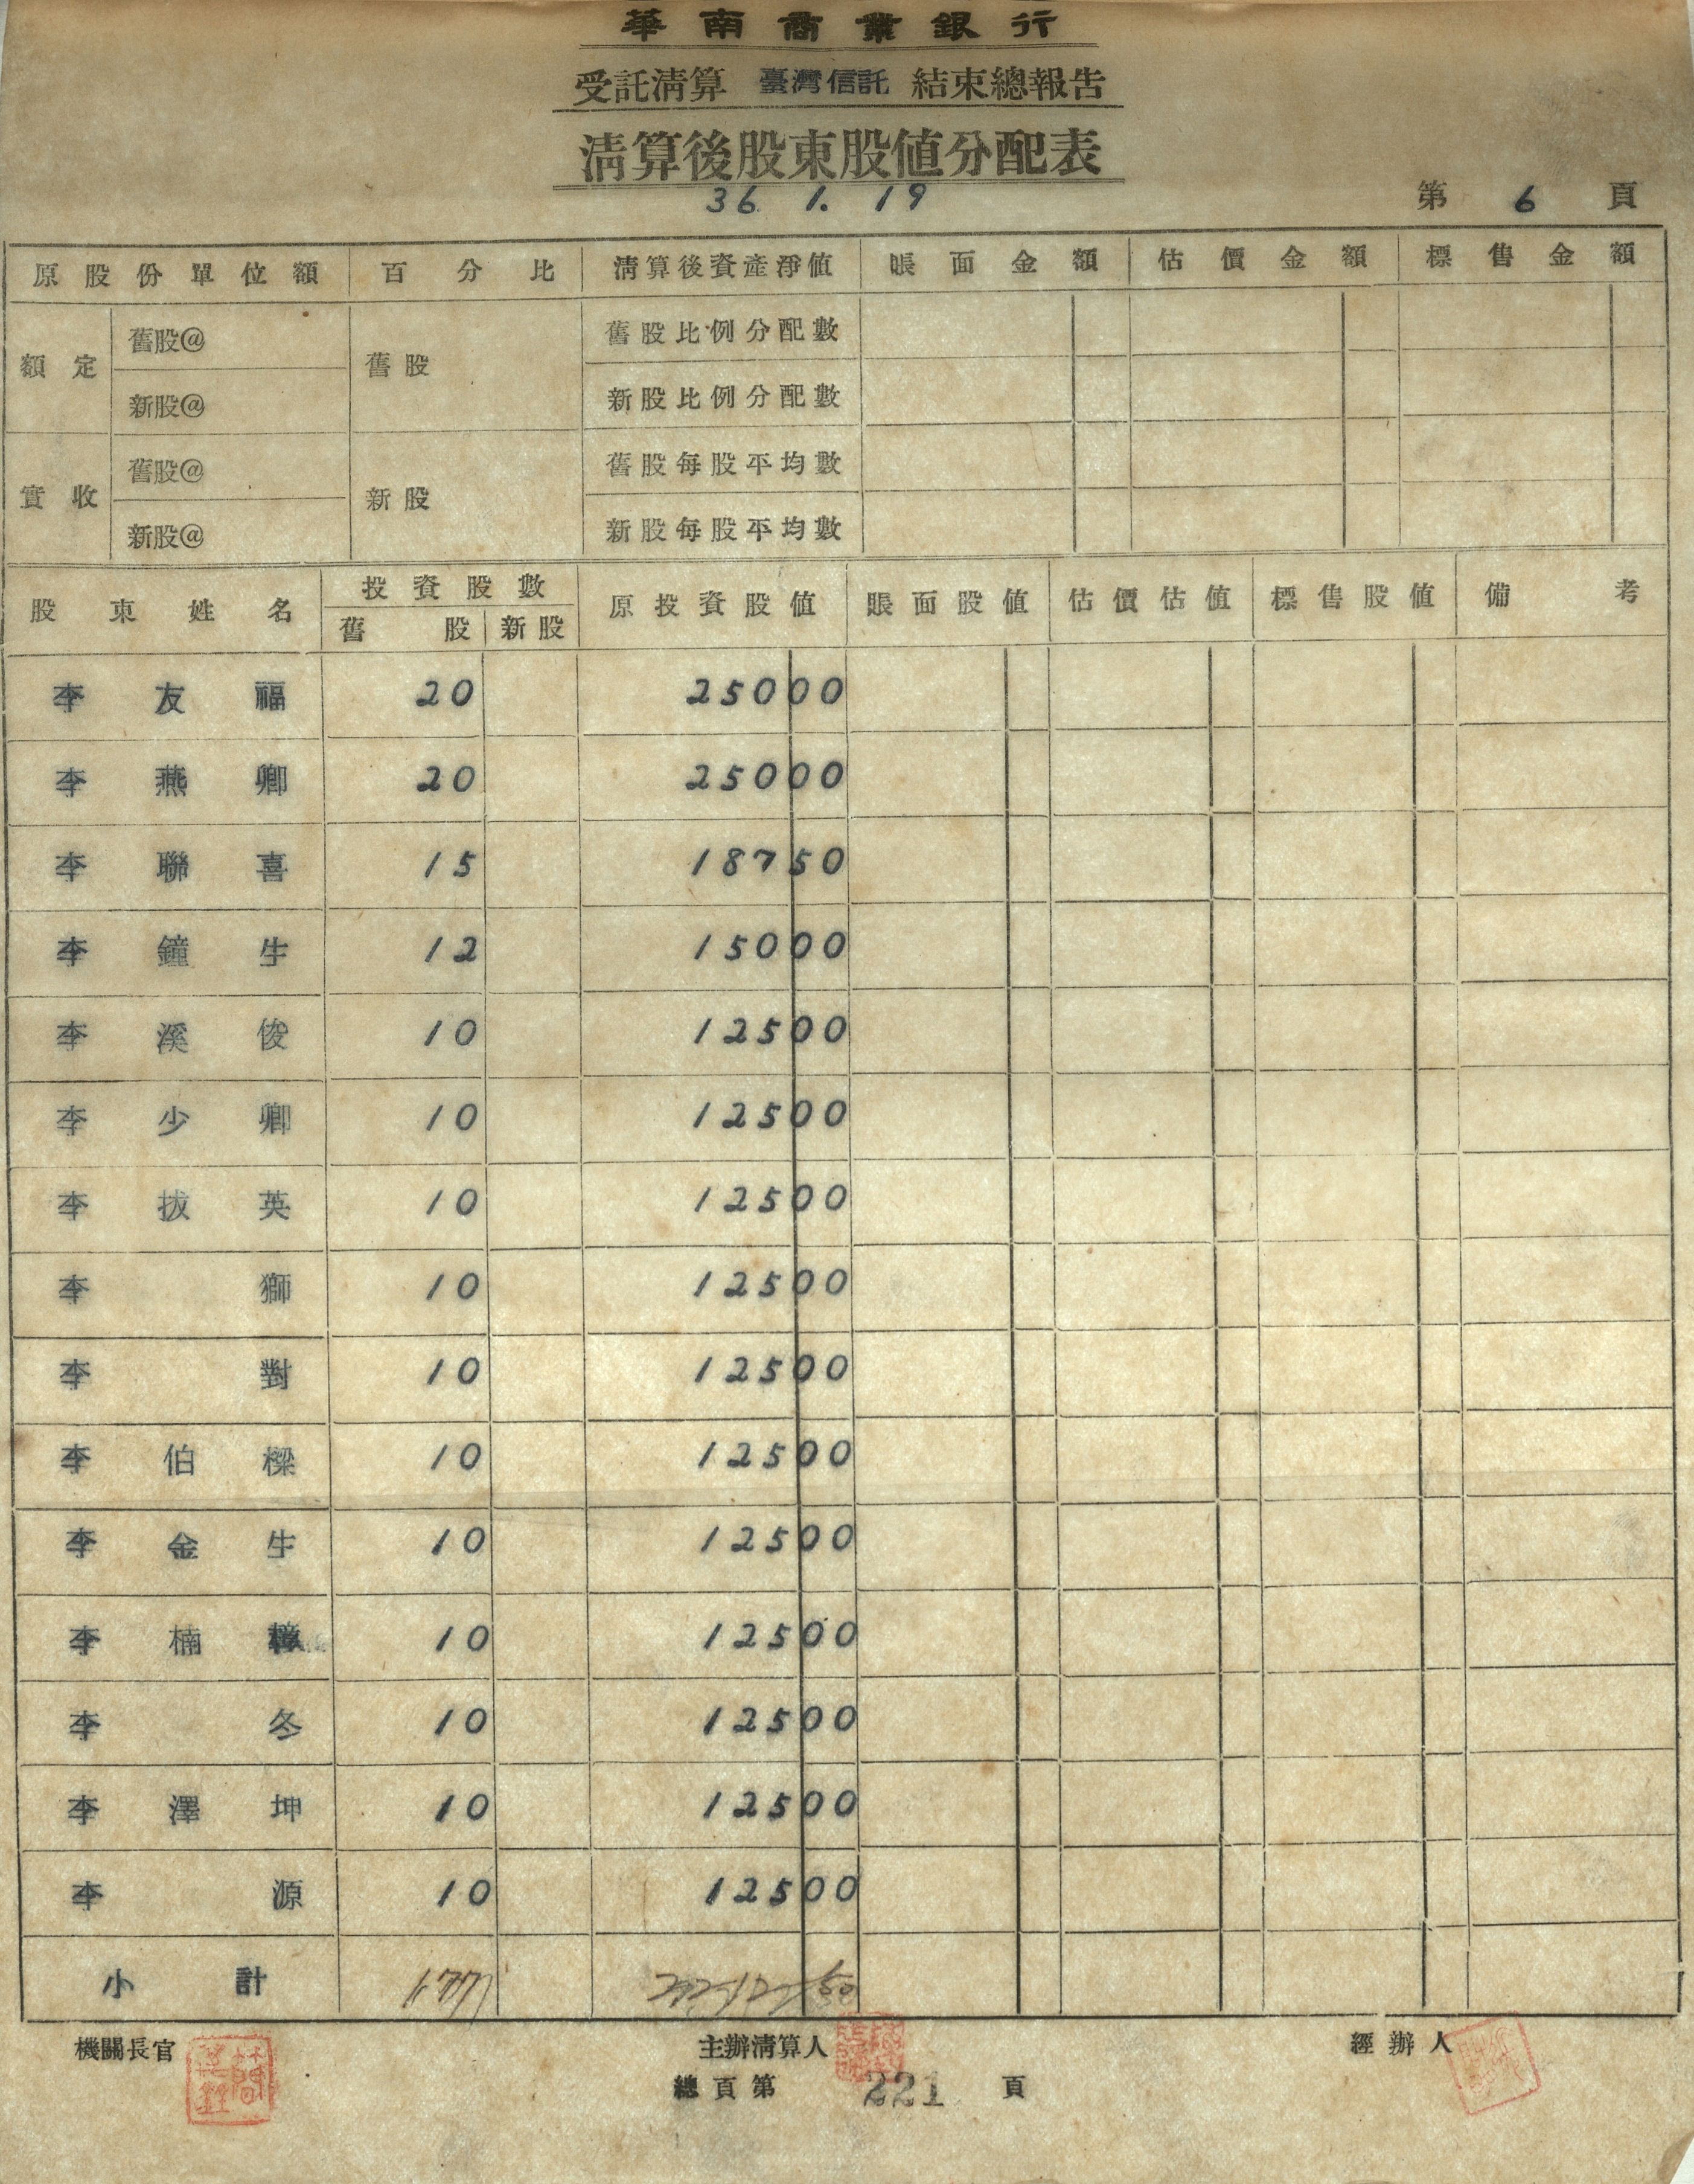 華南商業銀行
受託清算 臺灣信託 結束總報告
清算後股東股值分配表
36. 1. 19
第 6 頁
原股份單位額 百分比 清算後資產淨值 賬面金額 估價金額 標售金額
額定 舊股@ 舊股 舊股比例分配數
新股@ 新股比例分配數
實收 舊股@ 新股 舊股每股平均數
新股@ 新股每股平均數
股東姓名 投資股數 原投資股值 賬面股值 估價估值 標售股值 備考
舊股 新股
李友福 20 250 00
李燕卿 20 250 00
李聯喜 15 187 50
李鐘生 12 150 00
李溪俊 10 125 00
李少卿 10 125 00
李拔英 10 125 00
李獅 10 125 00
李對 10 125 00
李伯樑 10 125 00
李金生 10 125 00
李楠 10 125 00
李冬 10 125 00
李澤坤 10 125 00
李源 10 125 00
小計 177 2212 50
機關長官 主辦清算人 經辦人
總頁第 221 頁